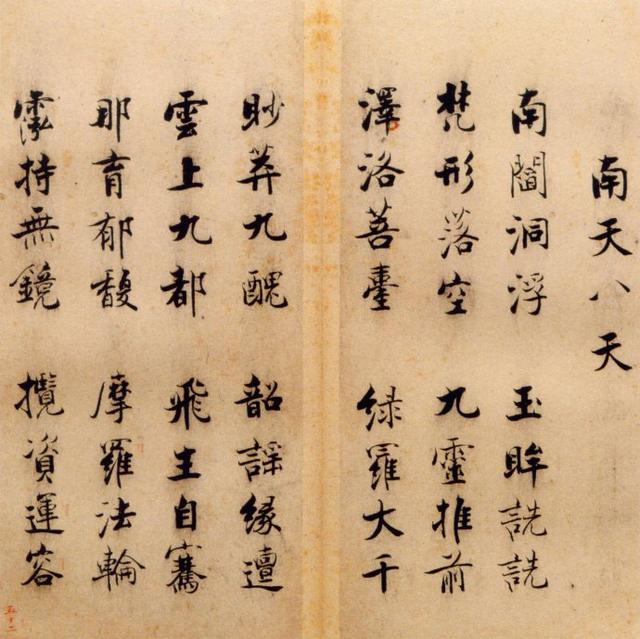 南天八天
南閻洞浮 玉眸詵詵
梵形落空 九靈推前
澤洛菩臺 綠羅大千
眇莽九醜 韶謠緣邅
雲上九都 飛生自騫
那育郁馥 摩羅法輪
持無鏡 攬資運容
五十二